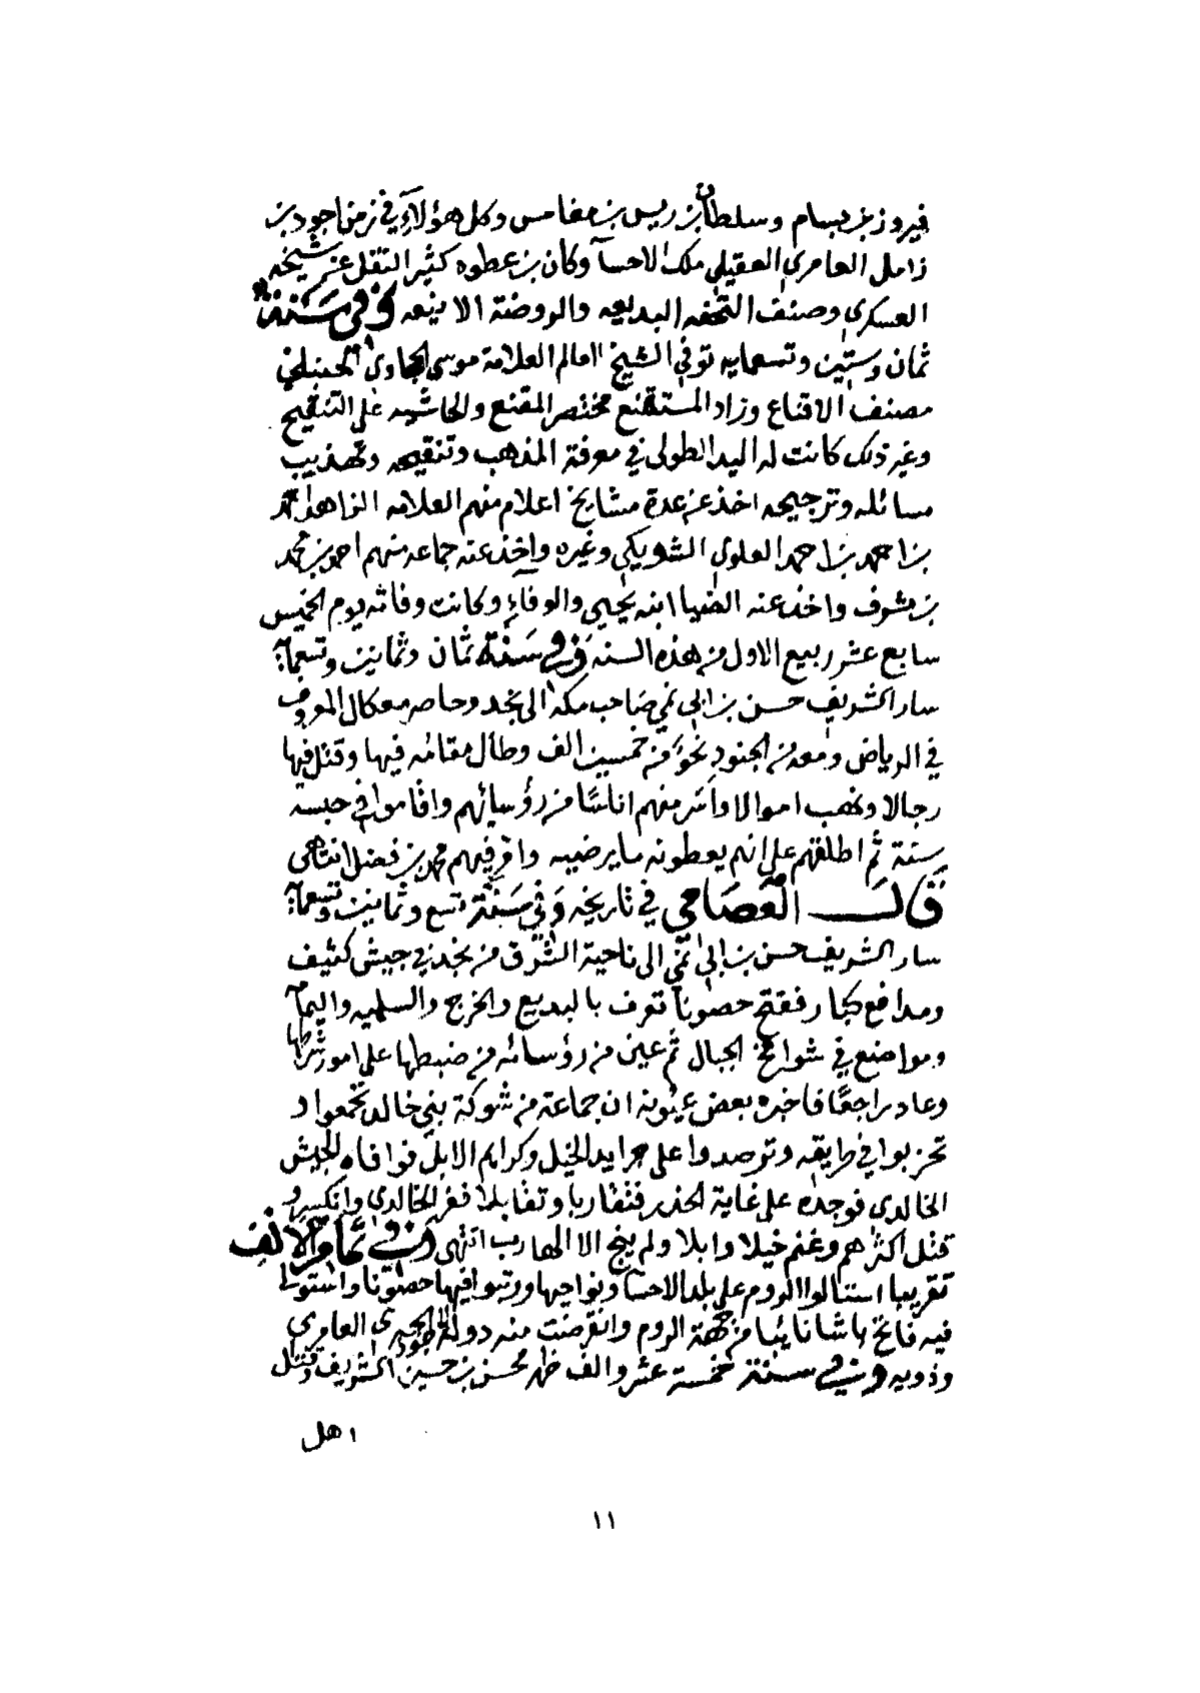 فيروز بن بسام وسلطان بن ريس بن مغامس وكل هؤلاء في زمن اجود بن
زامل العامري العقيلي ملك الاحسآ وكان بن عطوه كثير النقل عن شيخه
العسكري وصنف التحفه البديعه والروضة الانيعه وفي سنة
ثمان وستين وتسعمايه توفي الشيخ العالم العلامة موسى الحجاوي الحنبلي
مصنف الاقناع وزاد المستقنع مختصر المقنع والحاشيه على التنقيح
وغير ذلك كانت له اليد الطولى في معرفة المذهب وتنقيحه وتهذيب
مسائله وترجيحه اخذ عن عدة مشايخ اعلام منهم العلامه الزاهد محمد
بن احمد بن احمد العلوي الشويكي وغيره واخذ عنه جماعه منهم احمد بن محمد
بن مشرف واخذ عنه ايضا ابنه يحيى والوفاءي وكانت وفاته يوم الخميس
سابع عشر ربيع الاول من هذه السنه وفي سنة ثمان وثمانين وتسعمآية
سار الشريف حسن بن ابي نمي صاحب مكه الى نجد وحاصر معكال المعروف
في الرياض ومعه من الجنود نحوًا من خمسين الف وطال مقامه فيها وقتل فيها
رجالا ونهب اموالا واسر منهم اناسًا من رؤسائهم واقاموا في حبسه
سنة ثم اطلقهم على انهم يعطونه ما يرضيه وامر فيهم محمد بن فضل انتهى
قال العصامي في تاريخه وفي سنة تسع وثمانين وتسعمآية
سار الشريف حسن بن ابي نمي الى ناحية الشرق من نجد في جيش كثيف
ومدافع كبار ففتح حصونا تعرف بالبديع والخرج والسلميه واليمامة
ومواضع في شوامخ الجبال ثم عين من رؤسائه من ضبطها على امور شرطها
وعاد راجعًا فاخبره بعض عيونه ان جماعة من شوكة بني خالد تجمعوا و
تحزبوا في طريقه وترصدوا على جرايد الخيل وكرايم الابل فوافاه الجيش
الخالدي فوجده على غاية الحذر فتقاربا وتقابلا ففر الخالدي وانكسر و
قتل اكثرهم وغنم خيلا وابلا ولم ينج الا الهارب انتهى وفي تمام الالف
تقريبا استالوا الروم على بلد الاحسا ونواحيها ورتبوا فيها حصونا واستولى
فيه فاتح باشا نايبا من جهة الروم وانقرضت منه دولة اجود الجبري العامري
وذويه وفي سنة خمسة عشر والف ظهر محسن بن حسين الشريف وقتل
اهل
١١